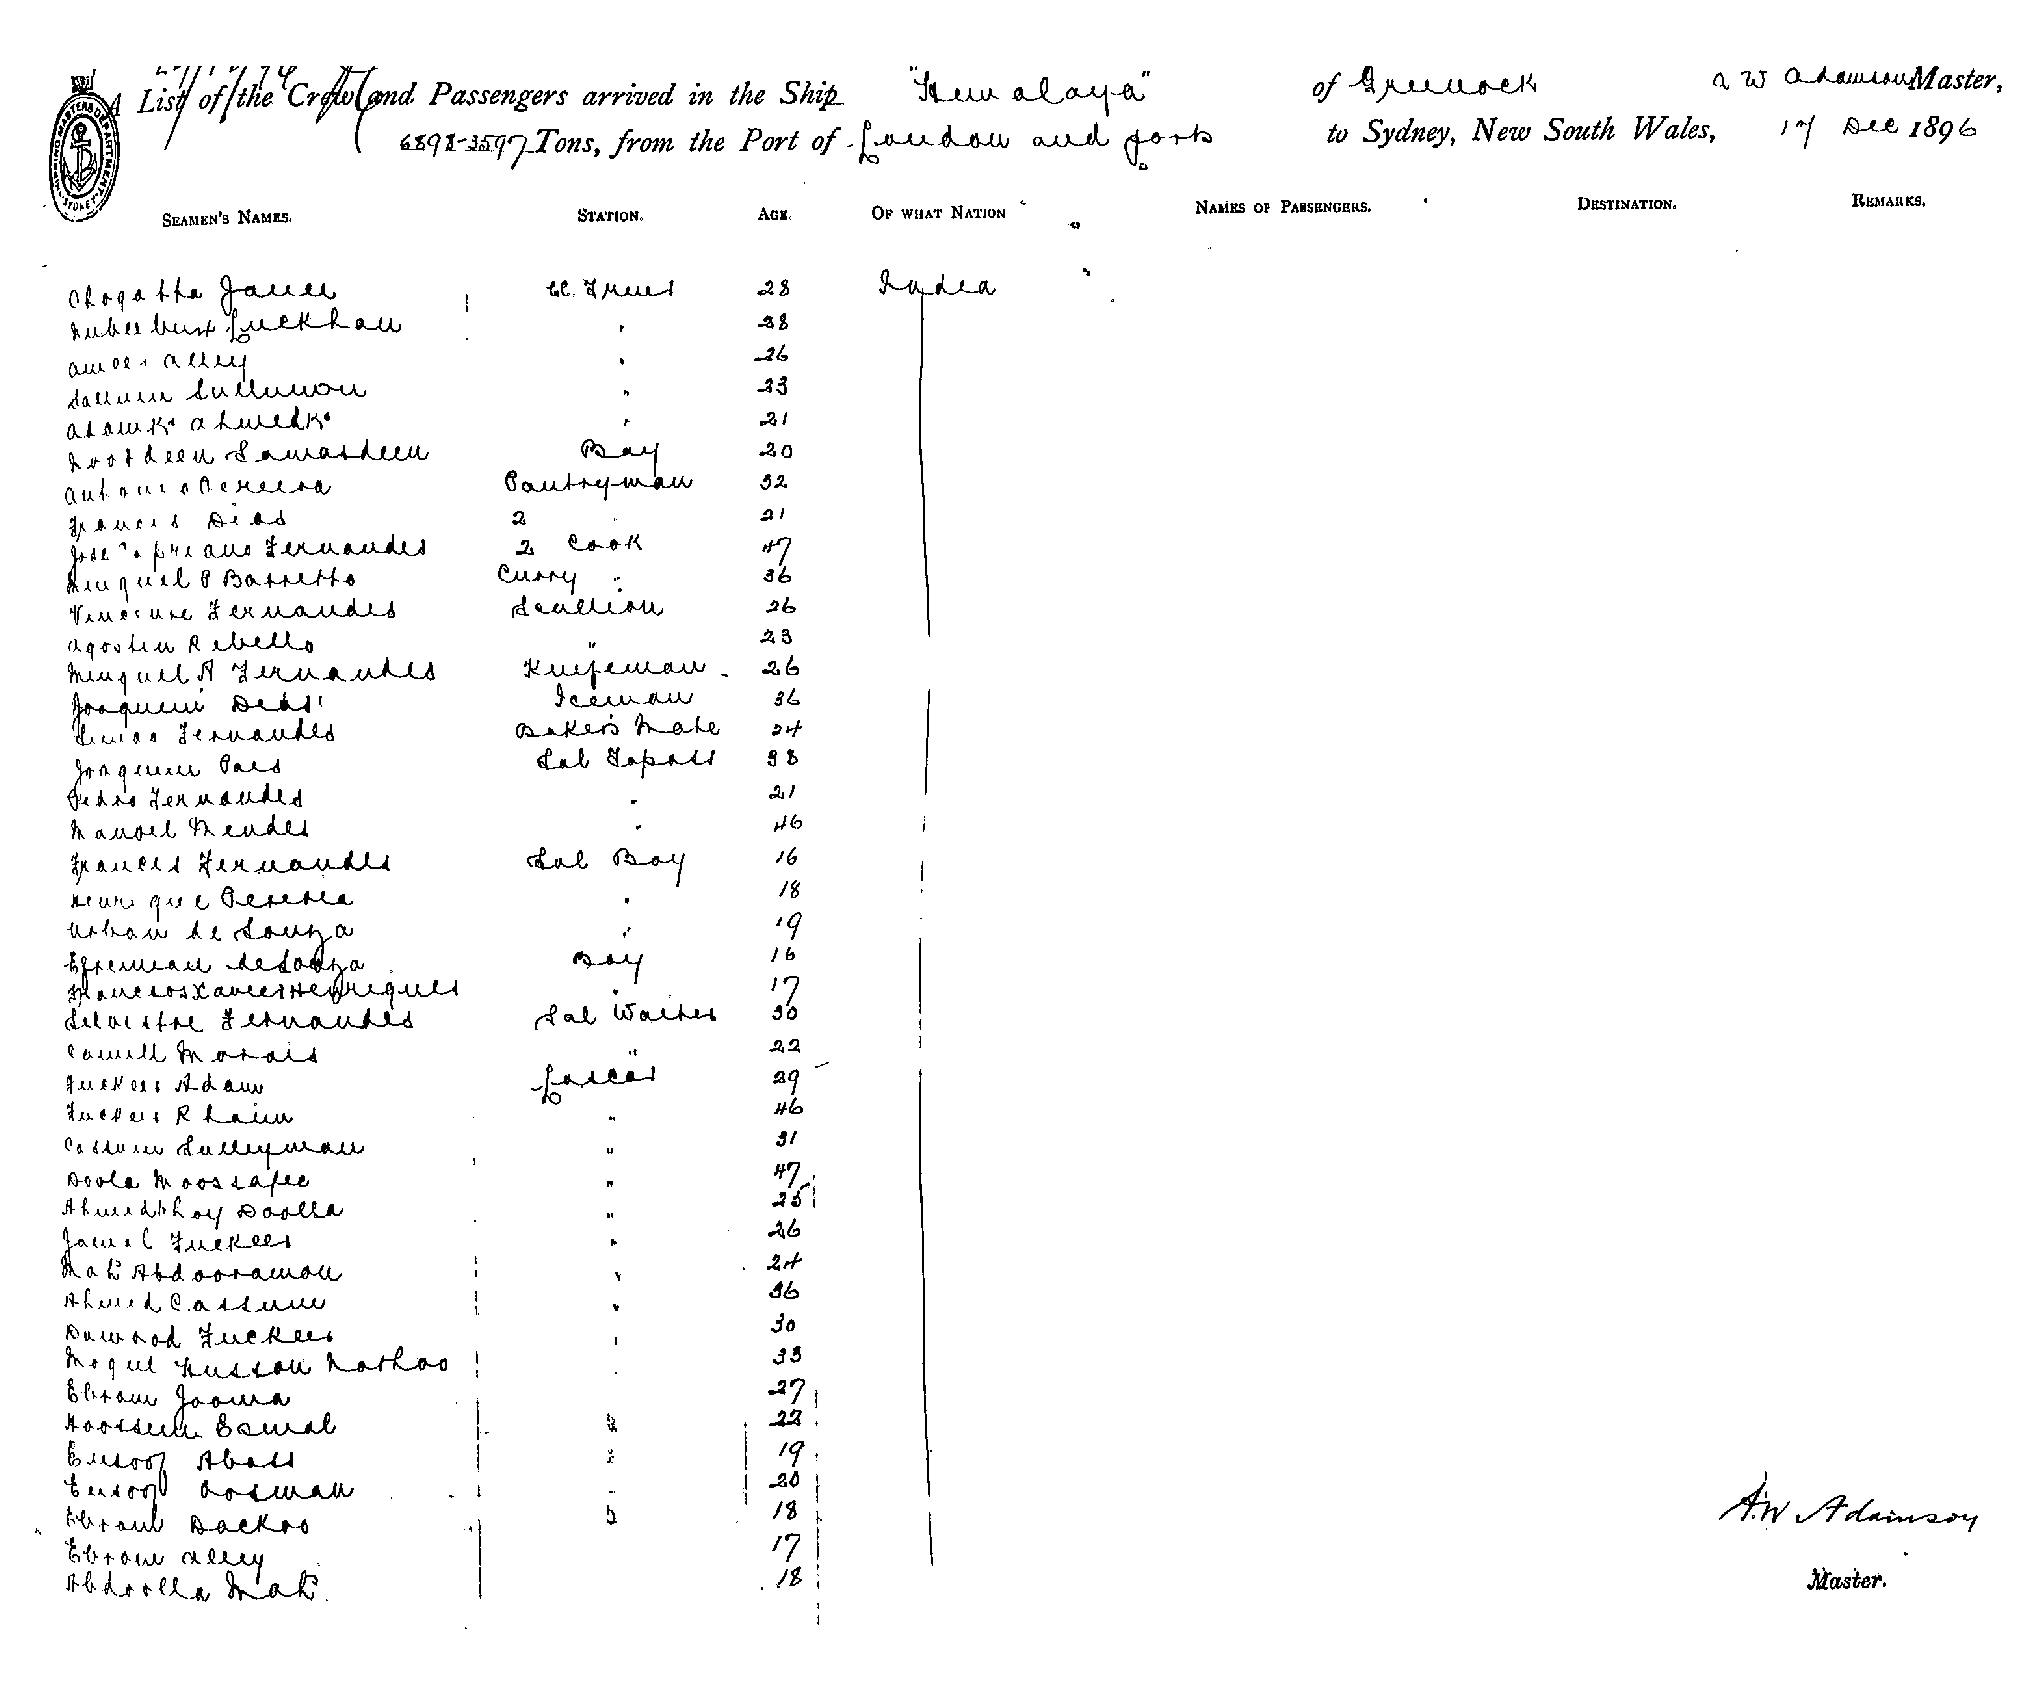 A List of the Crew and Passengers arrived in the Ship "Himalaya" of Greenock A W Adamson Master,
6898-3597 Tons, from the Port of London and ports to Sydney, New South Wales, 17 Dec 1896
SEAMEN'S NAMES. STATION. AGE. OF WHAT NATION NAMES OF PASSENGERS. DESTINATION. REMARKS.
28 India
Luckhan 38
alley 26
23
21
Boy 20
Antonio Pereira Pantryman 32
Francis Dias 2 " 21
Fernandes 2 Cook 47
Minguel P Barretto Curry " 36
Fernandes Scullion 26
Agostin Rebello " 23
Minguel A Fernandes Knifeman 26
Joaquim Dias Iceman 36
Simao Fernandes Baker's Mate 24
Joaquim Paes Sal Topass 38
Pedro Fernandes " 21
Manoel Mendes " 46
Francis Fernandes Sal Boy 16
Henrique Pereira " 18
Urban de Souza " 19
de Souza Boy 16
Xavier Henriques " 17
Silvestre Fernandes Sal Waiter 30
Camill Morais " 22
Fuckeer Adam Lascar 29
Fuckeer Rhaim " 46
Cassum Sulleyman " 31
Doola Moossafee " 47
Ahmedbhoy Doolla " 25
Jamal Fuckeer " 26
Abdooraman " 24
Ahmed Cassum " 36
Dawood Fuckeer " 30
Mogul Husson Nathoo " 33
Ebram Jooma 27
Hoossein Esmal " 22
Eusoof Abass " 19
Eusoof Oosman " 20
Ebram Backoo " 18
A.W Adamson
Ebram Alley 17
Abdoolla 18
Master.